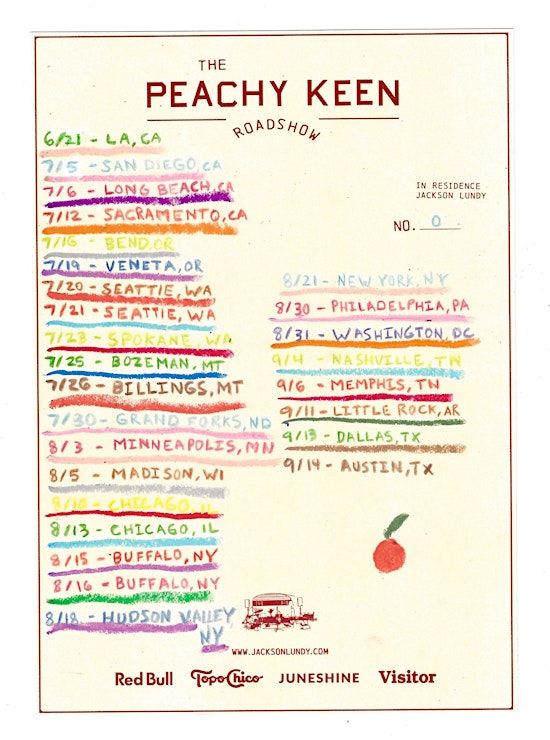 THE
PEACHY KEEN
ROADSHOW
6/21 - LA, CA
7/5 - SAN DIEGO, CA
7/6 - LONG BEACH, CA
7/12 - SACRAMENTO, CA
7/16 - BEND, OR
7/19 - VENETA, OR
7/20 - SEATTLE, WA
7/21 - SEATTLE, WA
7/23 - SPOKANE, WA
7/25 - BOZEMAN, MT
7/26 - BILLINGS, MT
7/30 - GRAND FORKS, ND
8/3 - MINNEAPOLIS, MN
8/5 - MADISON, WI
8/10 - CHICAGO, IL
8/13 - CHICAGO, IL
8/15 - BUFFALO, NY
8/16 - BUFFALO, NY
8/18 - HUDSON VALLEY,
NY
IN RESIDENCE
JACKSON LUNDY
NO. 0
8/21 - NEW YORK, NY
8/30 - PHILADELPHIA, PA
8/31 - WASHINGTON, DC
9/4 - NASHVILLE, TN
9/6 - MEMPHIS, TN
9/11 - LITTLE ROCK, AR
9/13 - DALLAS, TX
9/14 - AUSTIN, TX
WWW.JACKSONLUNDY.COM
Red Bull Topo Chico JUNESHINE Visitor